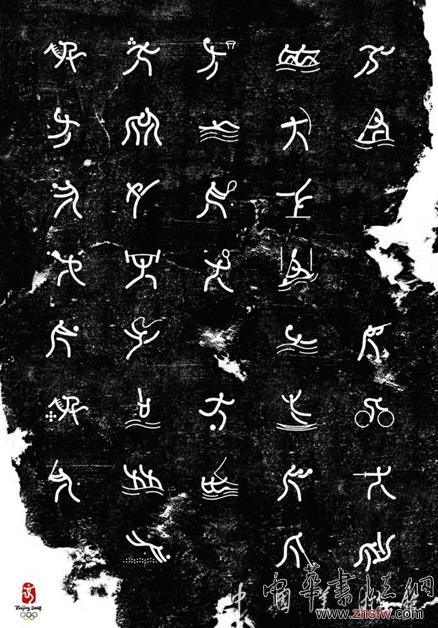 Beijing 2008
中華書法网
www.zhsfw.com